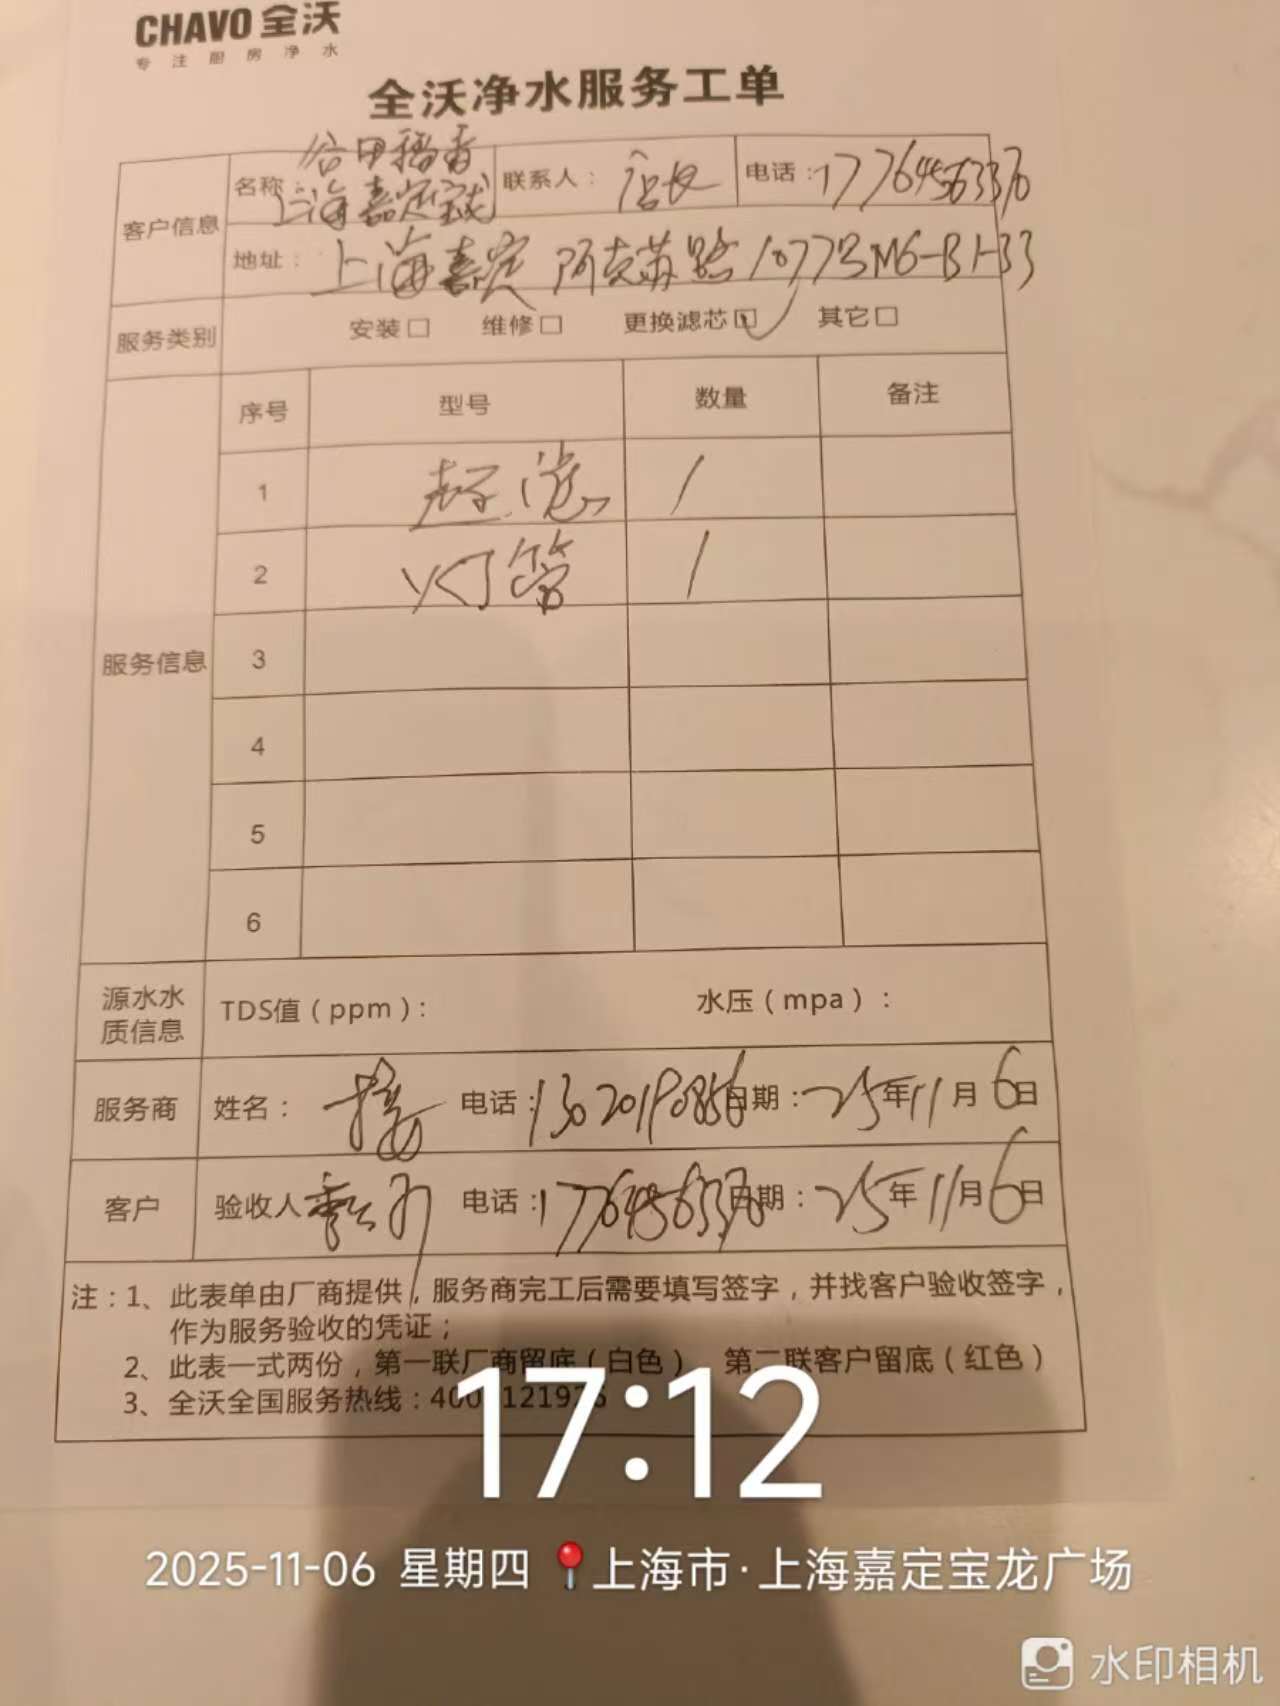 CHAVO 全沃
专注厨房净水
全沃净水服务工单
客户信息
名称 谷田稻香
上海嘉定宝龙
联系人： 店长
电话：17764563376
地址： 上海嘉定 阿克苏路1077号M6-B1-33
服务类别 安装□ 维修□ 更换滤芯☑ 其它□
服务信息
序号 型号 数量 备注
1 超滤 1
2 灯管 1
3
4
5
6
源水水质信息 TDS值（ppm）： 水压（mpa）：
服务商 姓名： 电话：13020190856 日期：25年11月6日
客户 验收人 电话：17764563376 日期：25年11月6日
注：1、此表单由厂商提供，服务商完工后需要填写签字，并找客户验收签字，
作为服务验收的凭证；
2、此表一式两份，第一联厂商留底（白色） 第二联客户留底（红色）
3、全沃全国服务热线：
17:12
2025-11-06 星期四 上海市·上海嘉定宝龙广场
水印相机